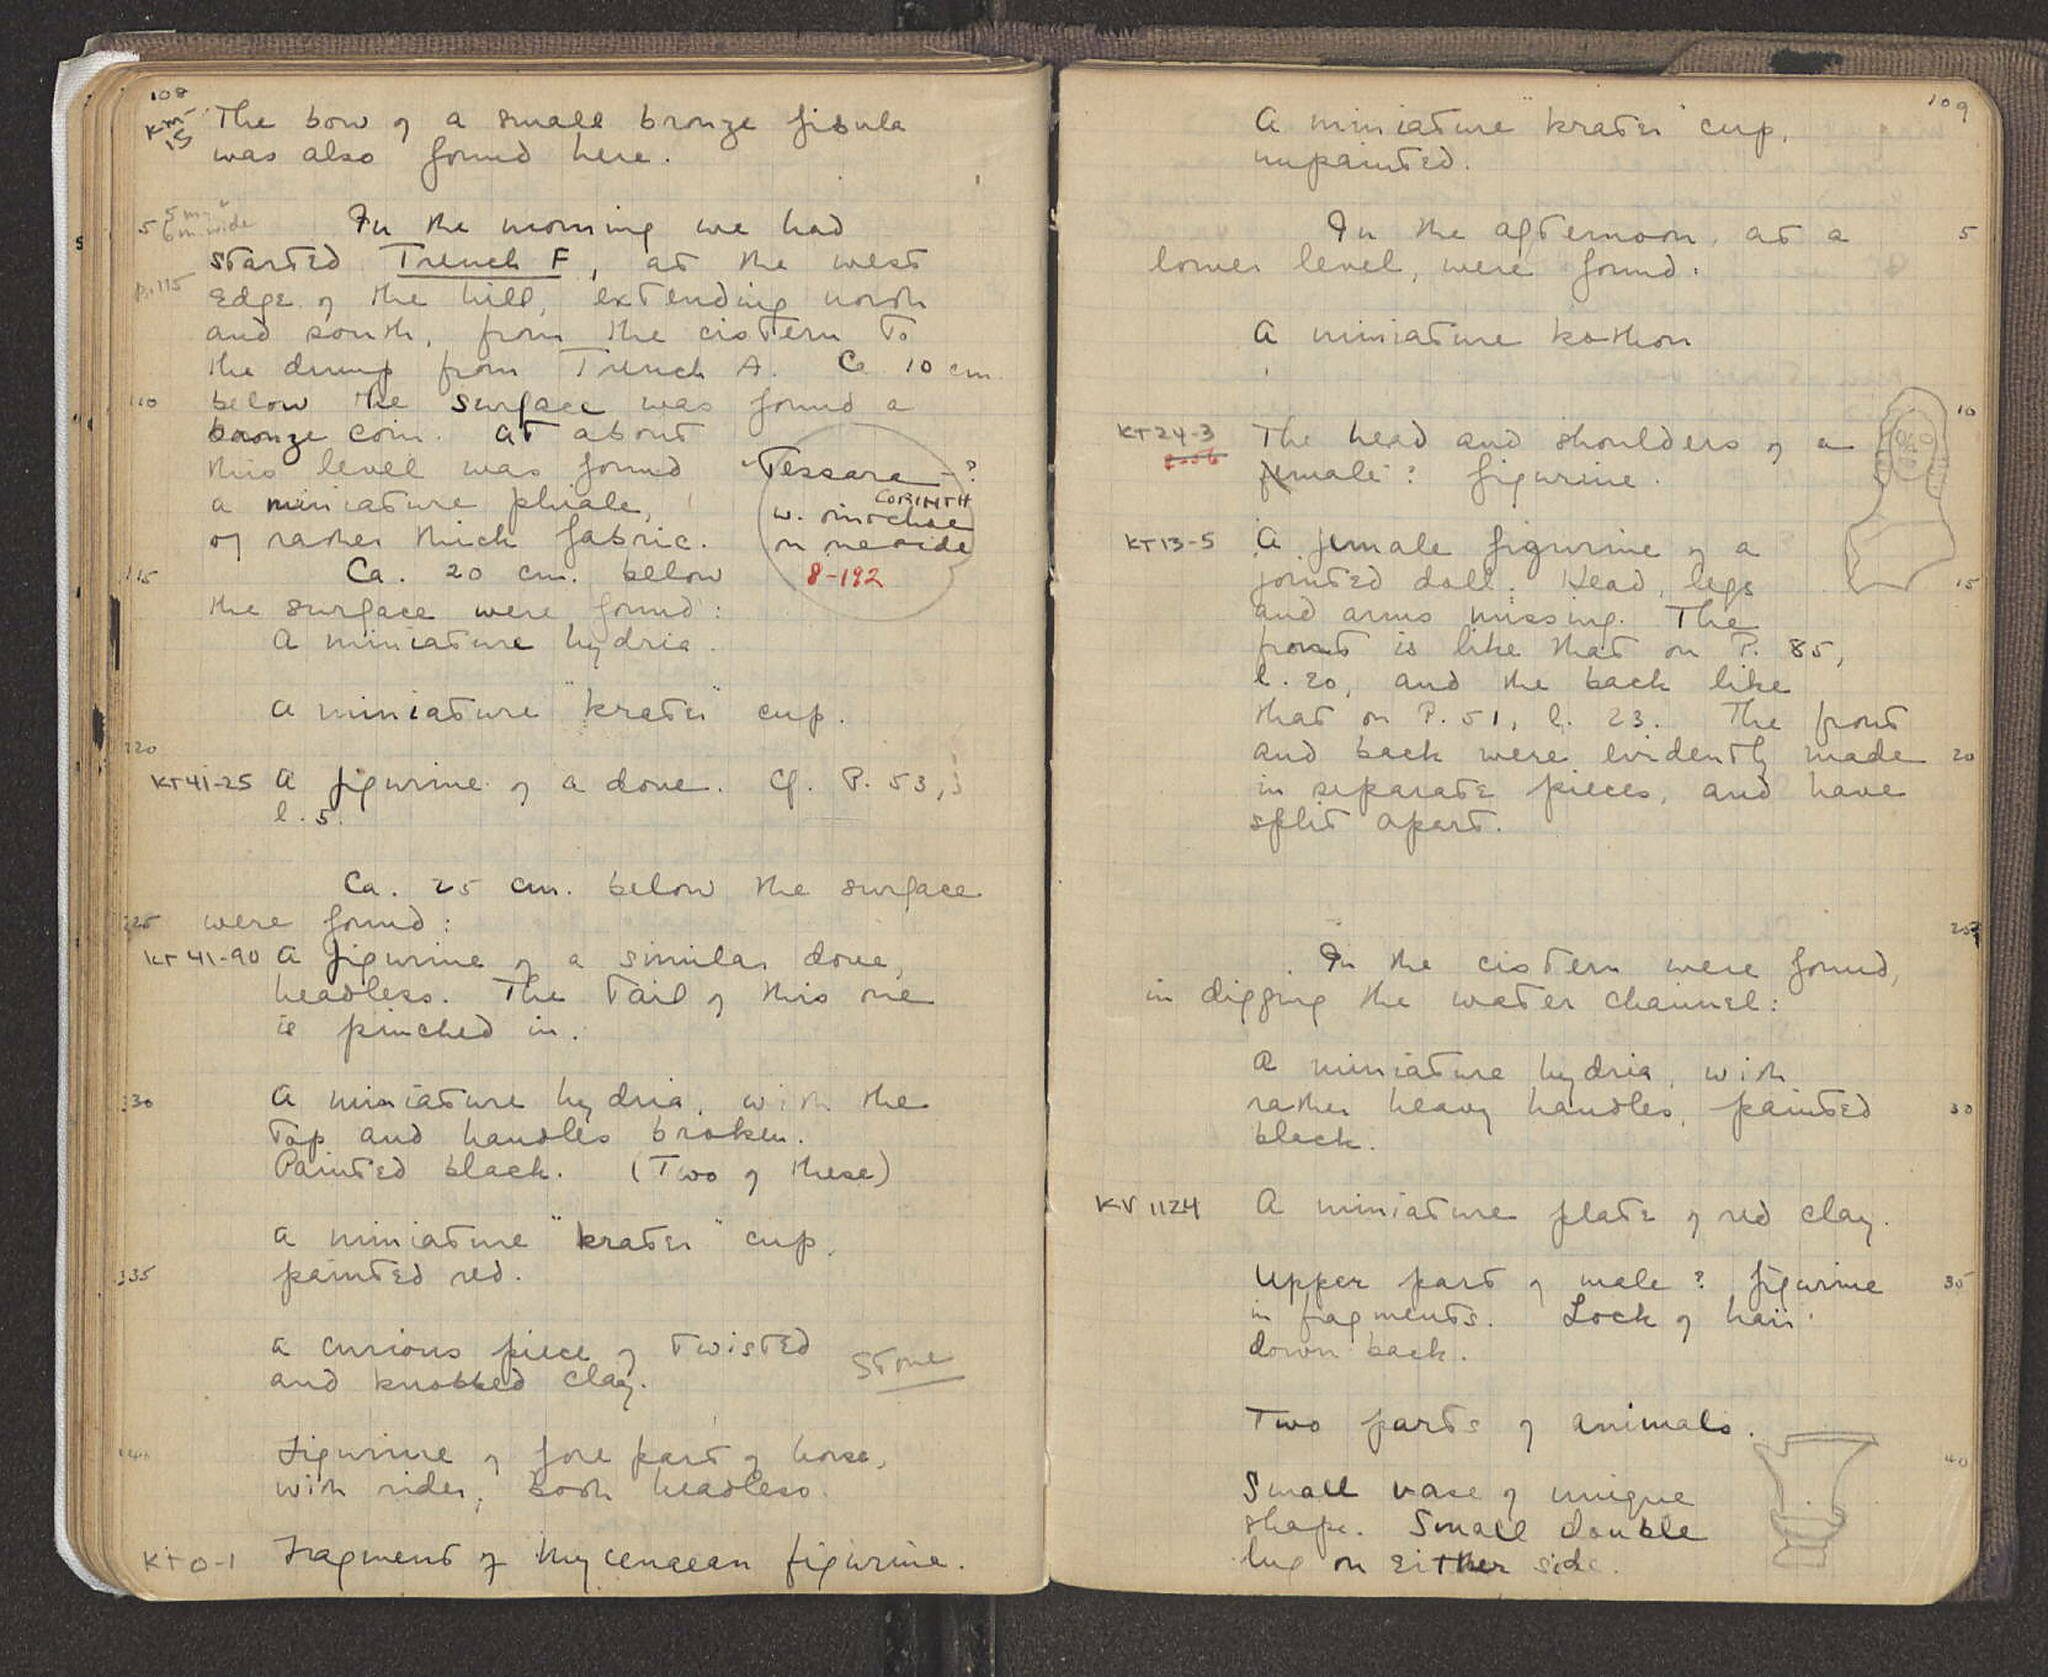 108
KM-
15
The bow of a small bronze fibula
was also found here.
5
6 m wide
In the morning we had
started Trench F, at the west
P. 115
edge of the hill, extending north
and south, from the cistern to
the dump from Trench A. Ca 10 cm.
110
below the surface was found a
bronze coin. At about
this level was found
a miniature phiale,
of rather thick fabric.
"Tessara"-?
CORINTH
w.
on one side
8-192
115
Ca. 20 cm. below
the surface were found:
A miniature hydria.
A miniature "krater" cup.
120
KT41-25 A figurine of a dove. Cf. P. 53,
l. 5.
Ca. 25 cm. below the surface
125 were found:
KT41-90 A figurine of a similar dove,
headless. The tail of this one
is pinched in.
130 A miniature hydria, with the
top and handles broken.
Painted black. (Two of these)
A miniature "krater" cup,
135 painted red.
A curious piece of twisted
and knobbed clay.
Stone
140 Figurine of fore part of horse,
with rider, both headless.
KT0-1 Fragment of Mycenaean figurine.
109
A miniature "krater" cup,
unpainted.
In the afternoon, at a 5
lower level, were found:
A miniature kothon
10
KT24-3 The head and shoulders of a
female? figurine.
KT13-5 A female figurine of a
jointed doll. Head, legs 15
and arms missing. The
front is like that on P. 85,
l. 20, and the back like
that on P. 51, l. 23. The front
and back were evidently made 20
in separate pieces, and have
split apart.
25
In the cistern were found,
in digging the water channel:
A miniature hydria, with
rather heavy handles, painted 30
black.
KV 1124 A miniature plate of red clay.
Upper part of male? figurine 35
in fragments. Lock of hair
down back.
Two parts of animals.
40
Small vase of unique
shape. Small double
lug on either side.